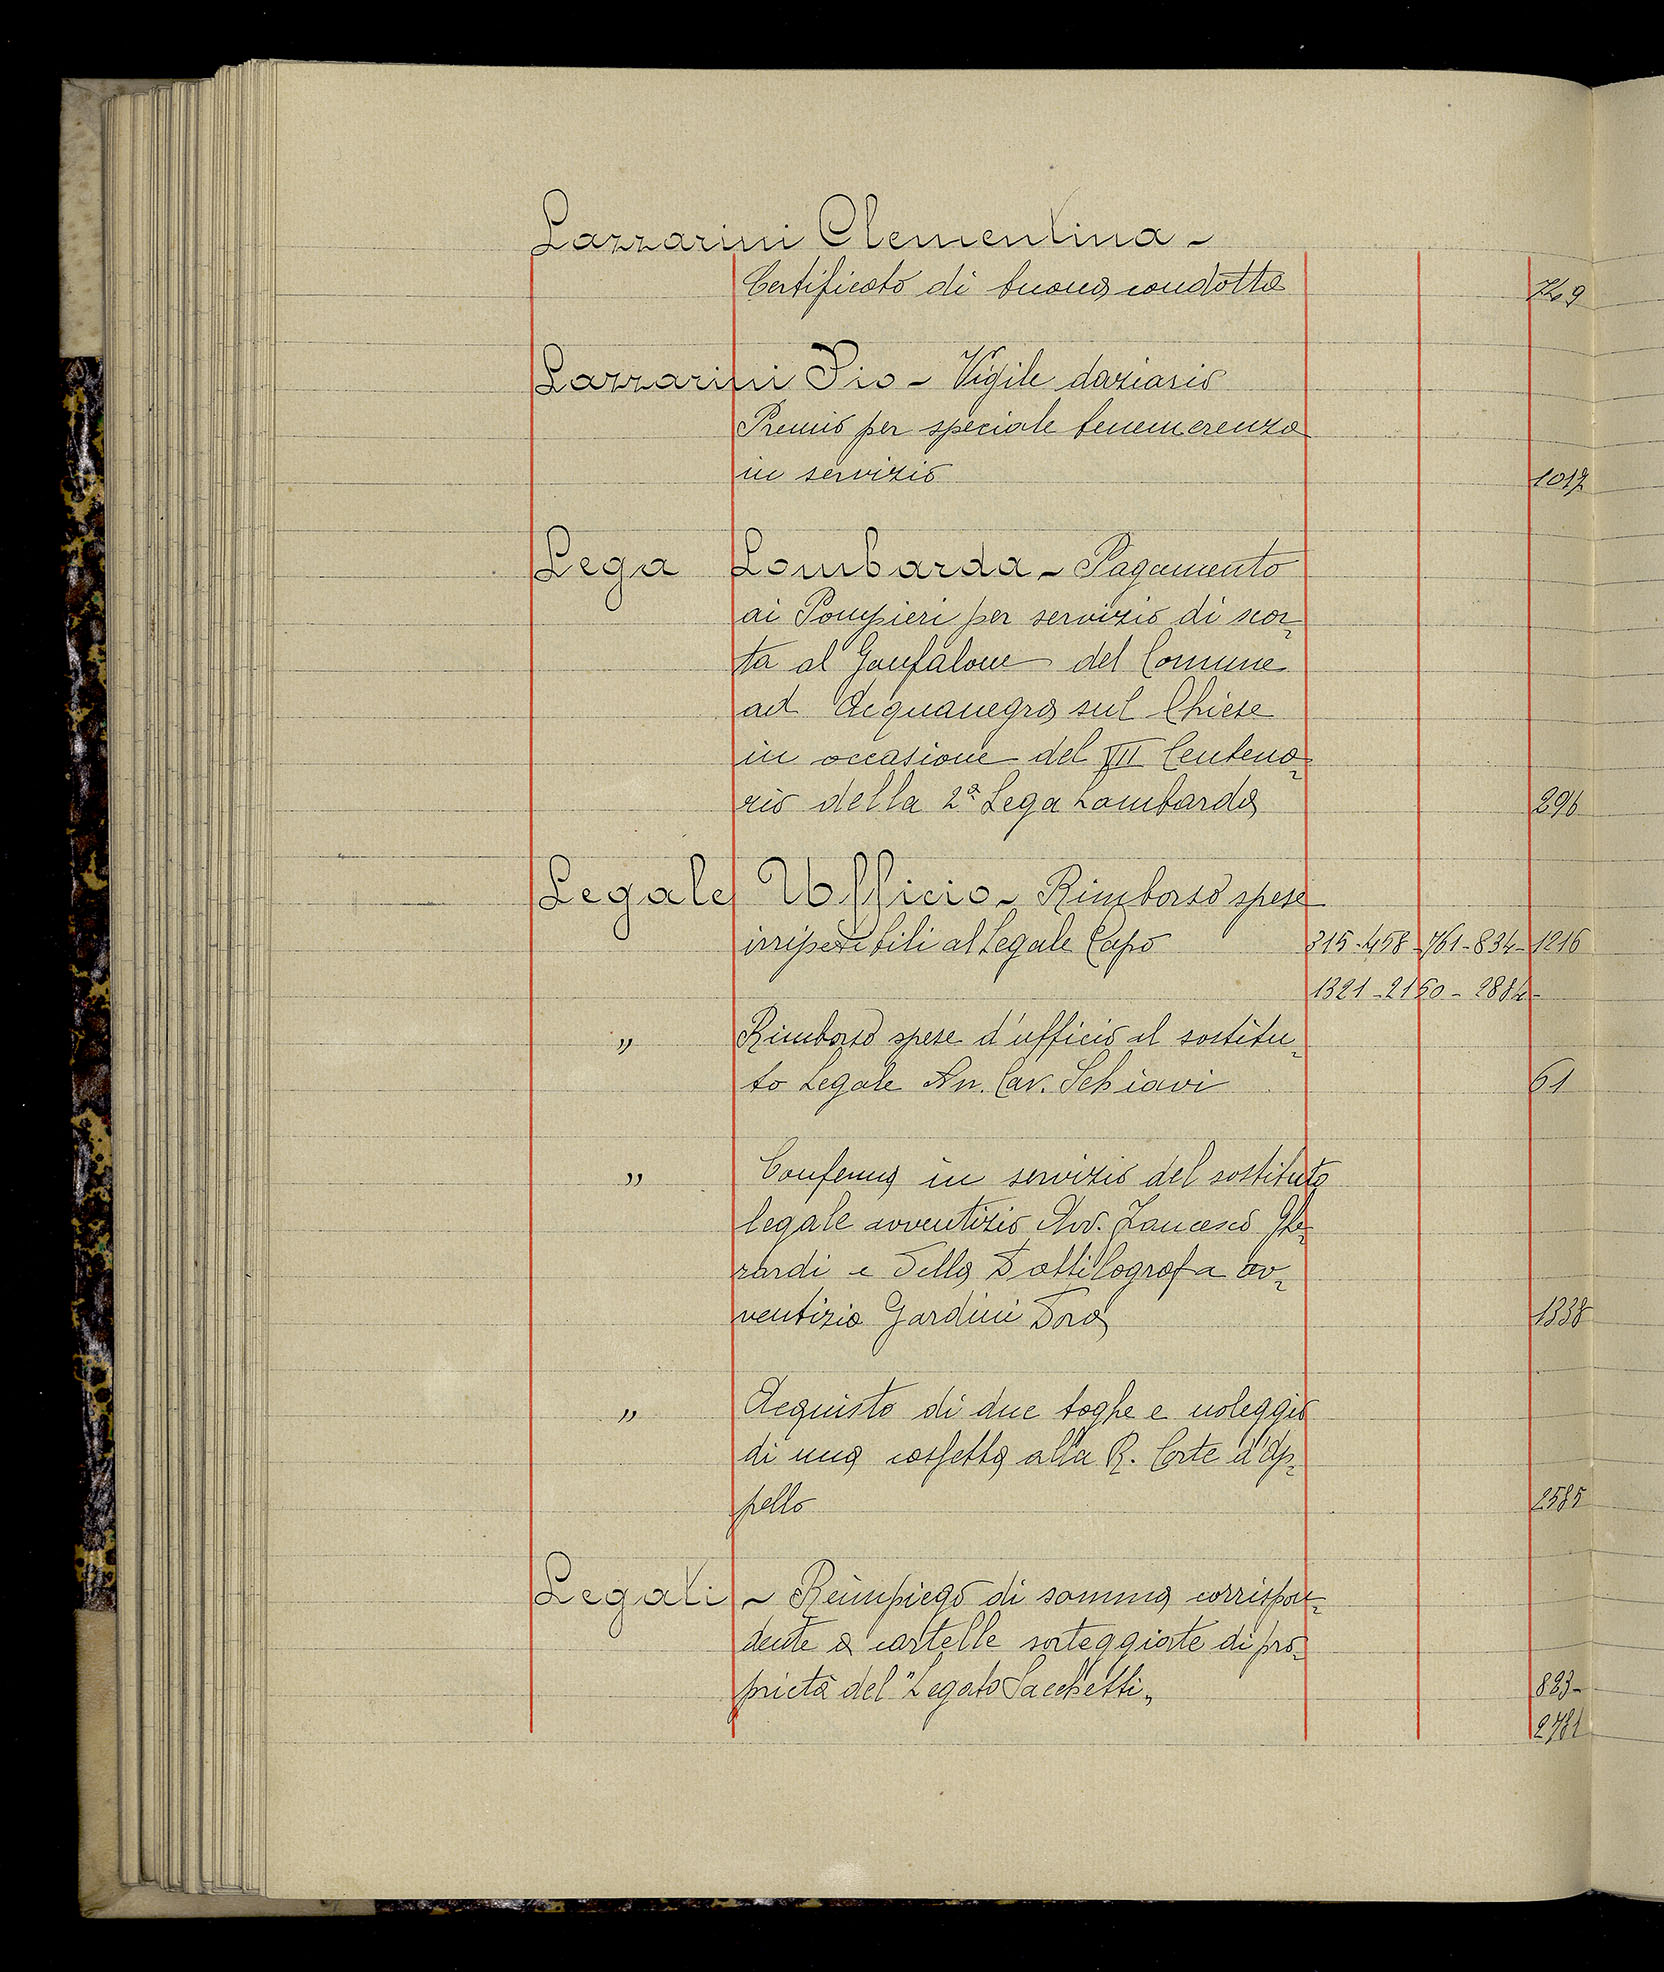 Lazzarini Clementina -
Certificato di buona condotta 749
Lazzarini Pio - Vigile daziario
Premio per speciale benemerenza
in servizio 1017
Lega Lombarda - Pagamento
ai Pompieri per servizio di scor-
ta al Gonfalone del Comune
ad Acquanegra sul Chiese
in occasione del VII Centena-
rio della 2a Lega Lombarda 296
Legale Ufficio - Rimborso spese
irripetibili al Legale Capo 315-458-761-834-1216
1321-2160-2884-
" Rimborso spese d'ufficio al sostitu-
to Legale Av. Cav. Schiavi 61
" Conferma in servizio del sostituto
legale avventizio Avv. Francesco Ghe-
rardi e della Dattilografa av-
ventizia Gardini Dora 1338
" Acquisto di due toghe e noleggio
di una casfetta alla R. Corte d'Ap-
pello 2585
Legati - Reimpiego di somma corrispon-
dente a cartelle sorteggiate di pro-
prietà del "Legato Sacchetti" 823-
2781